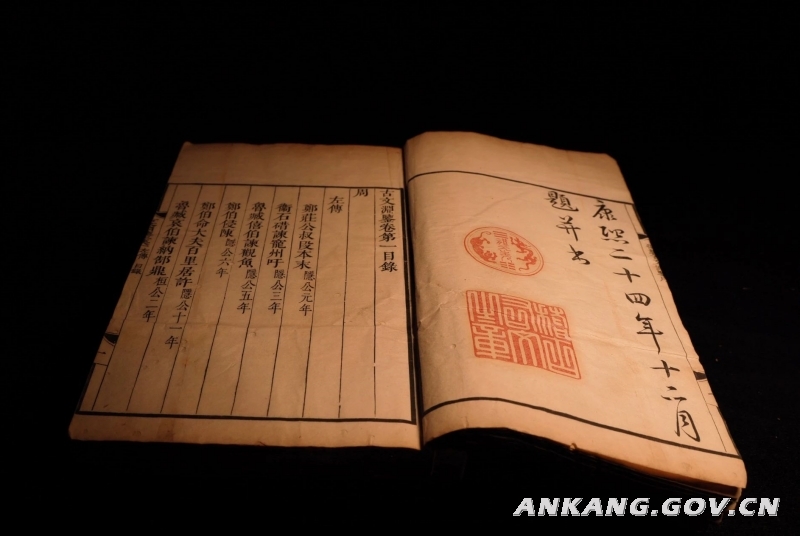 康熙二十四年十二月
題并書
古文淵鑒卷第一目錄
周
左傳
鄭莊公叔段本末隱公元年
衞石碏諫寵州吁隱公三年
魯臧僖伯諫觀魚隱公五年
鄭伯侵陳隱公六年
鄭伯命大夫百里居許隱公十一年
魯臧哀伯諫納郜鼎桓公二年
ANKANG.GOV.CN